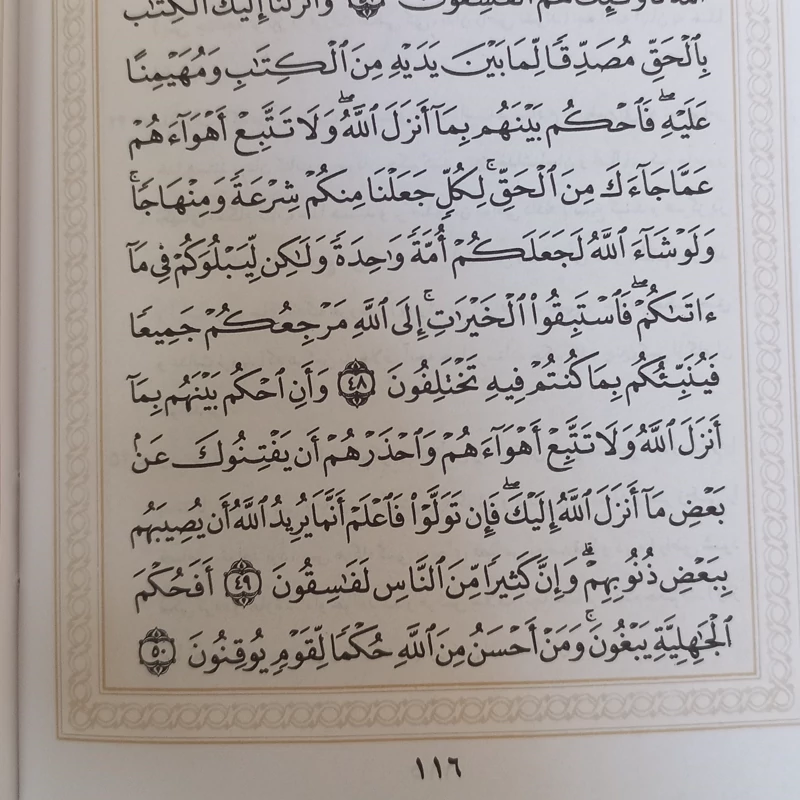 فَأُو۟لَٰٓئِكَ هُمُ ٱلْفَٰسِقُونَ ۝٤٧ وَأَنزَلْنَآ إِلَيْكَ ٱلْكِتَٰبَ
بِٱلْحَقِّ مُصَدِّقًا لِّمَا بَيْنَ يَدَيْهِ مِنَ ٱلْكِتَٰبِ وَمُهَيْمِنًا
عَلَيْهِ ۖ فَٱحْكُم بَيْنَهُم بِمَآ أَنزَلَ ٱللَّهُ ۖ وَلَا تَتَّبِعْ أَهْوَآءَهُمْ
عَمَّا جَآءَكَ مِنَ ٱلْحَقِّ ۚ لِكُلٍّ جَعَلْنَا مِنكُمْ شِرْعَةً وَمِنْهَاجًا ۚ
وَلَوْ شَآءَ ٱللَّهُ لَجَعَلَكُمْ أُمَّةً وَٰحِدَةً وَلَٰكِن لِّيَبْلُوَكُمْ فِى مَآ
ءَاتَىٰكُمْ ۖ فَٱسْتَبِقُوا۟ ٱلْخَيْرَٰتِ ۚ إِلَى ٱللَّهِ مَرْجِعُكُمْ جَمِيعًا
فَيُنَبِّئُكُم بِمَا كُنتُمْ فِيهِ تَخْتَلِفُونَ ۝٤٨ وَأَنِ ٱحْكُم بَيْنَهُم بِمَآ
أَنزَلَ ٱللَّهُ وَلَا تَتَّبِعْ أَهْوَآءَهُمْ وَٱحْذَرْهُمْ أَن يَفْتِنُوكَ عَنۢ
بَعْضِ مَآ أَنزَلَ ٱللَّهُ إِلَيْكَ ۖ فَإِن تَوَلَّوْا۟ فَٱعْلَمْ أَنَّمَا يُرِيدُ ٱللَّهُ أَن يُصِيبَهُم
بِبَعْضِ ذُنُوبِهِمْ ۗ وَإِنَّ كَثِيرًا مِّنَ ٱلنَّاسِ لَفَٰسِقُونَ ۝٤٩ أَفَحُكْمَ
ٱلْجَٰهِلِيَّةِ يَبْغُونَ ۚ وَمَنْ أَحْسَنُ مِنَ ٱللَّهِ حُكْمًا لِّقَوْمٍ يُوقِنُونَ ۝٥٠
١١٦